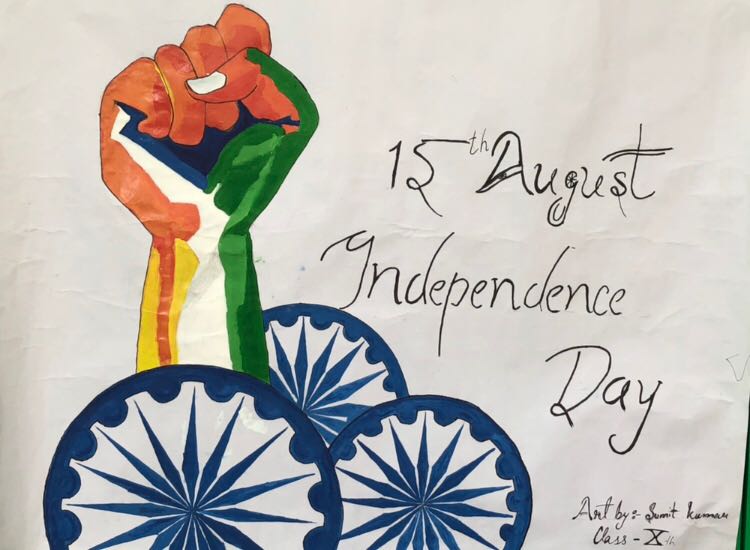 15th August
Independence
Day
Art by:- Sumit Kumar
Class - Xth